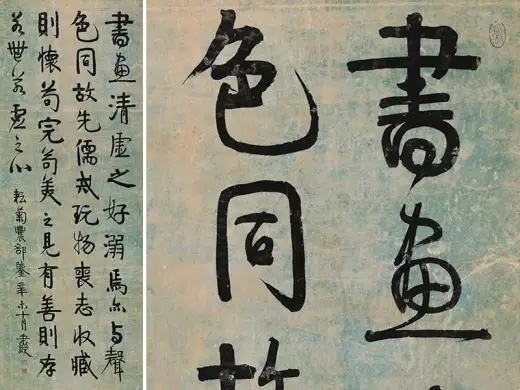 書畫清虛之好溺焉亦与聲
色同故先儒戒玩物喪志收藏
則懷苟完苟美之見有善則存
若無若虛之心
耘菊農部鑒 辛未十月
書畫
色同故